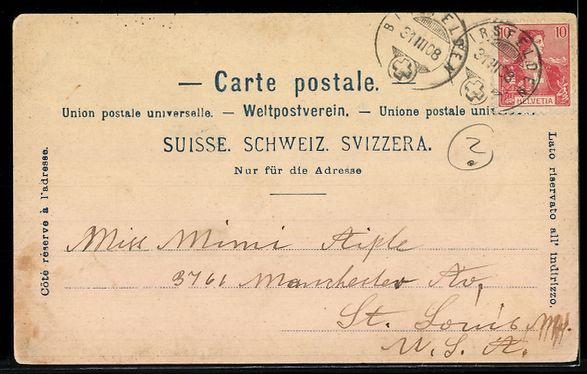 10 10
HELVETIA
BIRSFELDEN
31.III.08
BIRSFELDEN
31.III.08
— Carte postale. —
Union postale universelle. — Weltpostverein. — Unione postale universale
SUISSE. SCHWEIZ. SVIZZERA.
Nur für die Adresse
Côté réservé à l'adresse.
Lato riservato all' indirizzo.
2.
Miss Mimi Aiple
3761 Manchester Av,
St. Louis, Mo.
U. S. A.